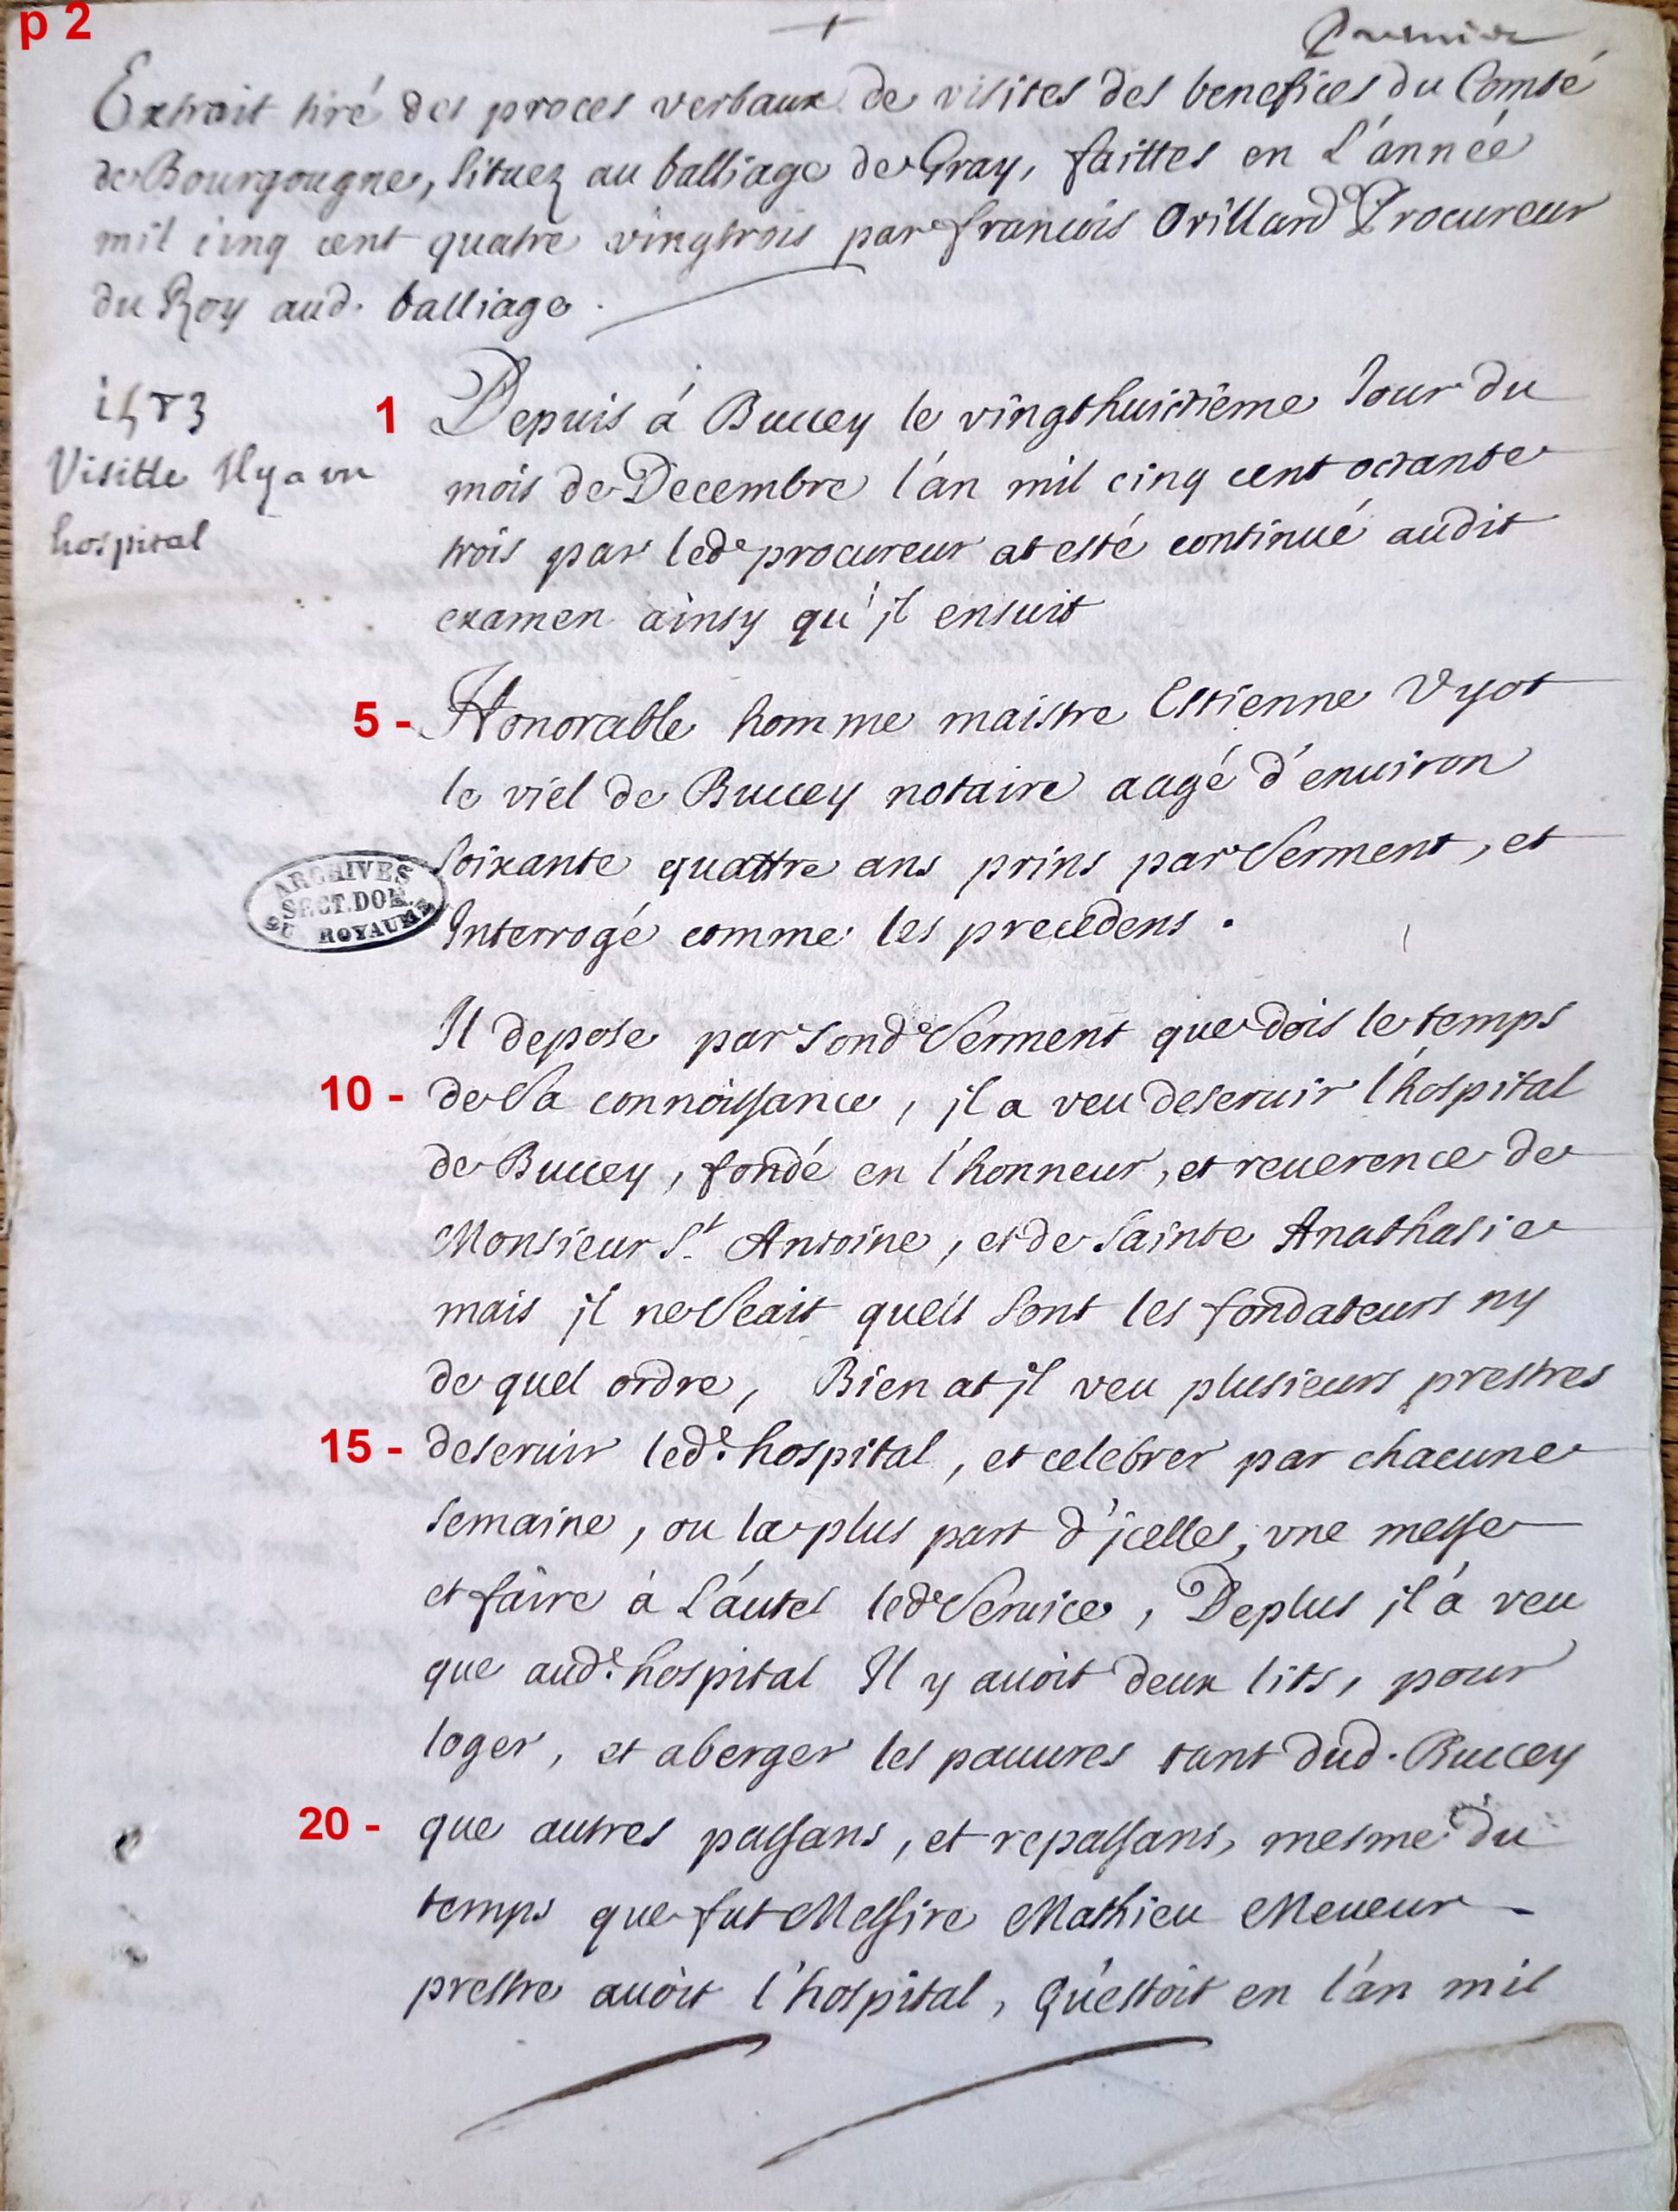 p 2
+ Premier
Extrait tiré des proces verbaux de visites des benefices du Comté
de Bourgougne, situez au balliage de Gray, faittes en L'année
mil cinq cent quatre vingtrois par francois Orillard Procureur
du Roy aud. balliage.
1583
Visitte Il y a vn
hospital
1 Depuis á Buccey le vingthuictiéme Jour du
mois de Decembre l'an mil cinq cent octante
trois par led.e procureur at esté continué audit
examen ainsy qu'jl ensuit
5 - Honorable homme maistre Estienne Vyot
le viel de Buccey notaire aagé d'enuiron
soixante quattre ans prins par serment, et
Interrogé comme les precedens.
ARCHIVES
SECT. DOM.
DU ROYAUME
Il depose par sond.e serment que dois le temps
10 - de sa connoissance, jl a veu deseruir l'hospital
de Buccey, fondé en l'honneur, et reuerence de
Monsieur St. Antoine, et de sainte Anathasie
mais jl ne sçait quels sont les fondateurs ny
de quel ordre, Bien at jl veu plusieurs prestres
15 - deseruir led.e hospital, et celebrer par chacune
semaine, ou la plus part d'jcelles, vne messe
et faire à L'autel led.e seruice, De plus jl à veu
que aud.e hospital Il y auoit deux lits, pour
loger, et aberger les pauures tant dud. Buccey
20 - que autres passans, et repassans, mesme du
temps que fut Messire Mathieu Meueur
prestre auoit l'hospital, Qu'estoit en l'an mil